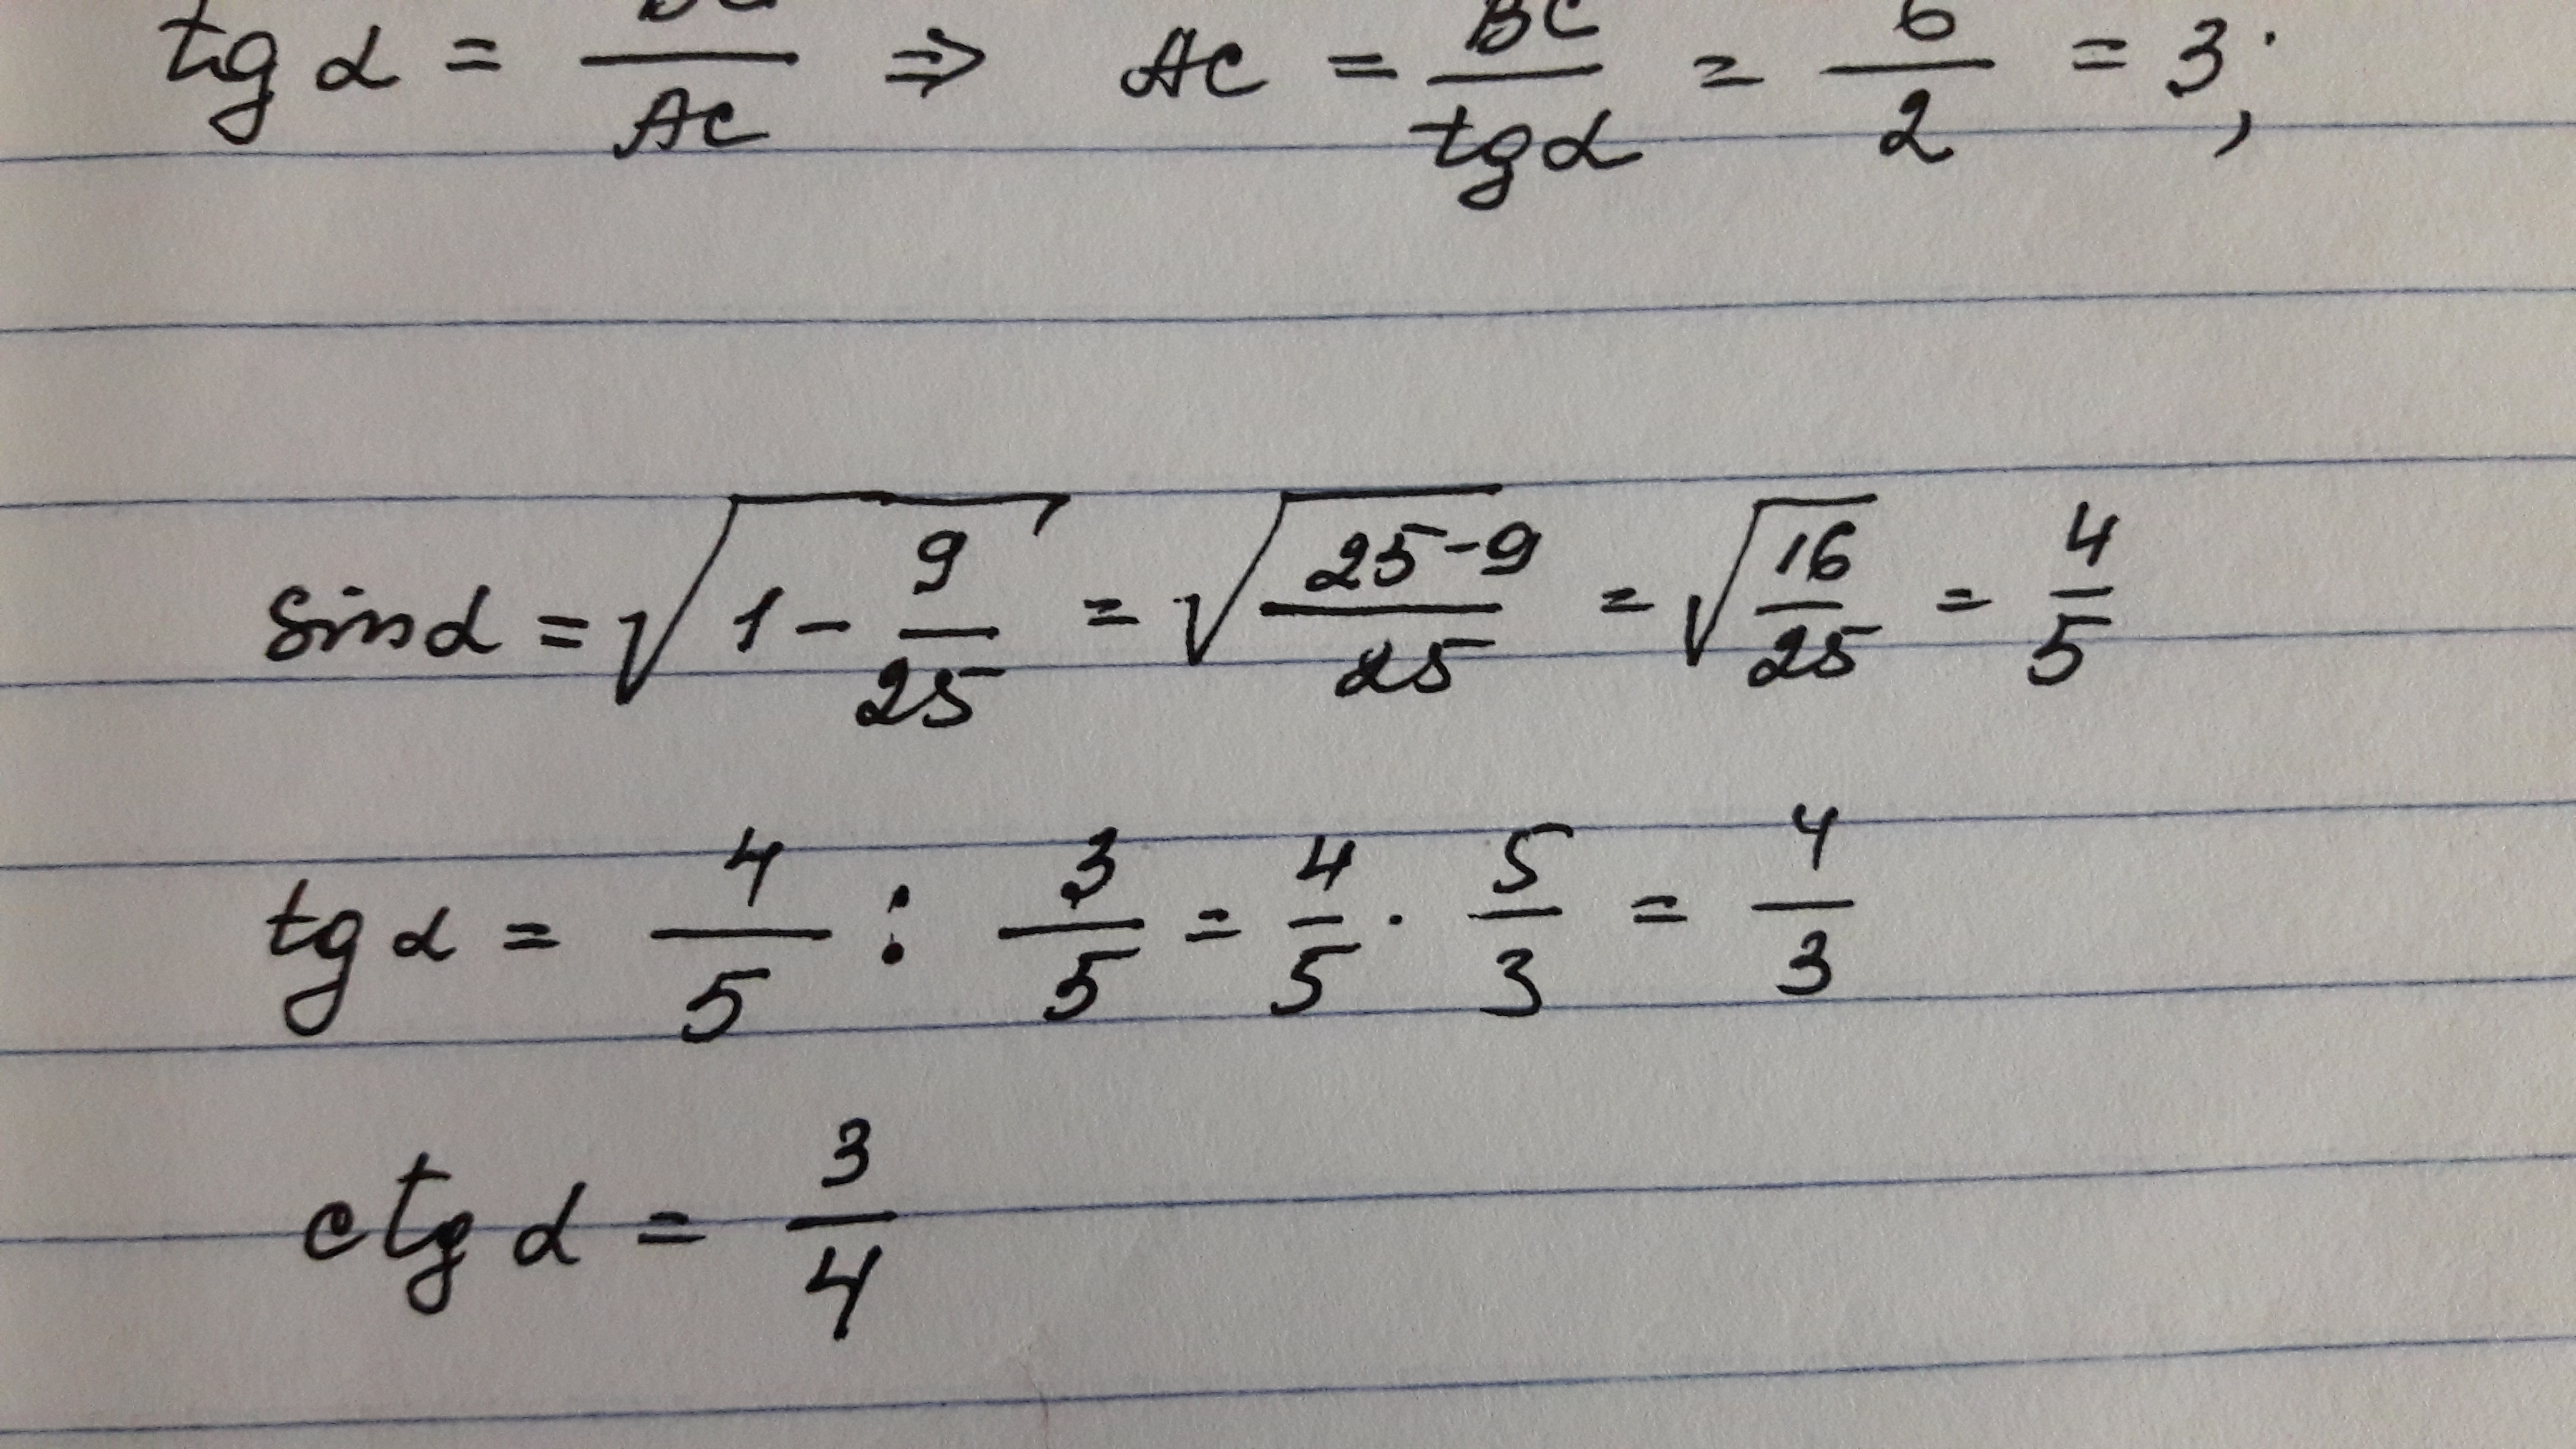 tg α = BC/AC ⇒ AC = BC/tg α = 6/2 = 3;
sin α = √(1 - 9/25) = √((25-9)/25) = √(16/25) = 4/5
tg α = 4/5 : 3/5 = 4/5 · 5/3 = 4/3
ctg α = 3/4